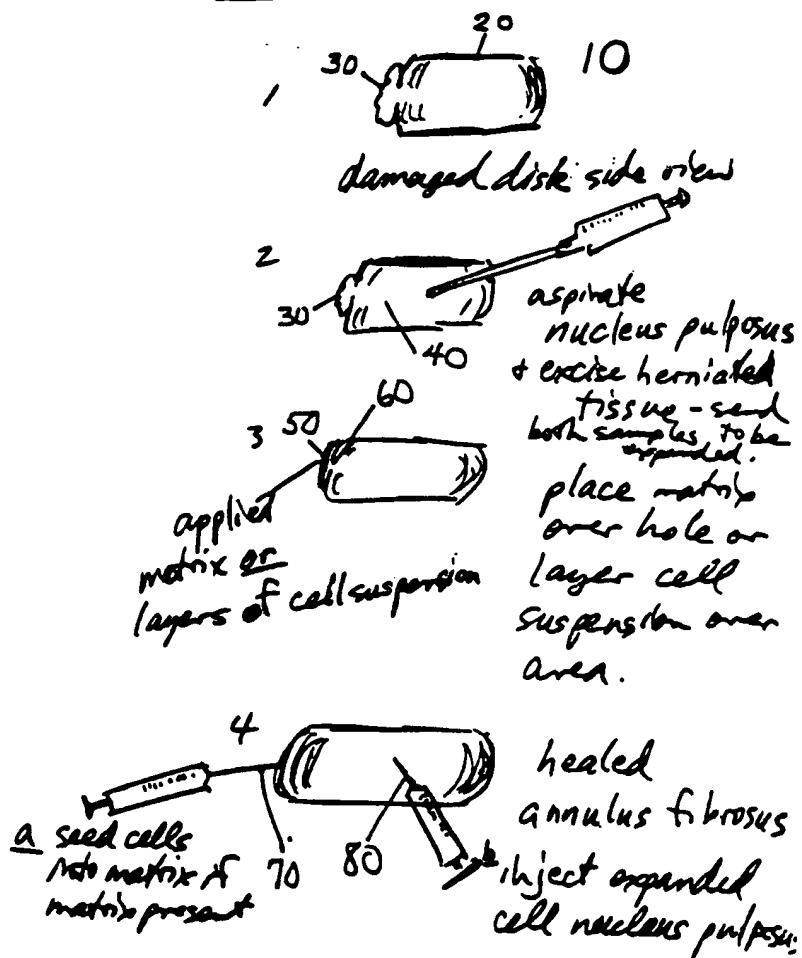 20
10
30
1
damaged disk side view
2
30
40
aspirate
nucleus pulposus
+ excise herniated
tissue - send
both samples to be
expanded.
3 50
60
applied
matrix or
layers of cell suspension
place matrix
over hole or
layer cell
suspension over
area.
4
70
80
a seed cells
into matrix if
matrix present
healed
annulus fibrosus
b
inject expanded
cell nucleus pulposus